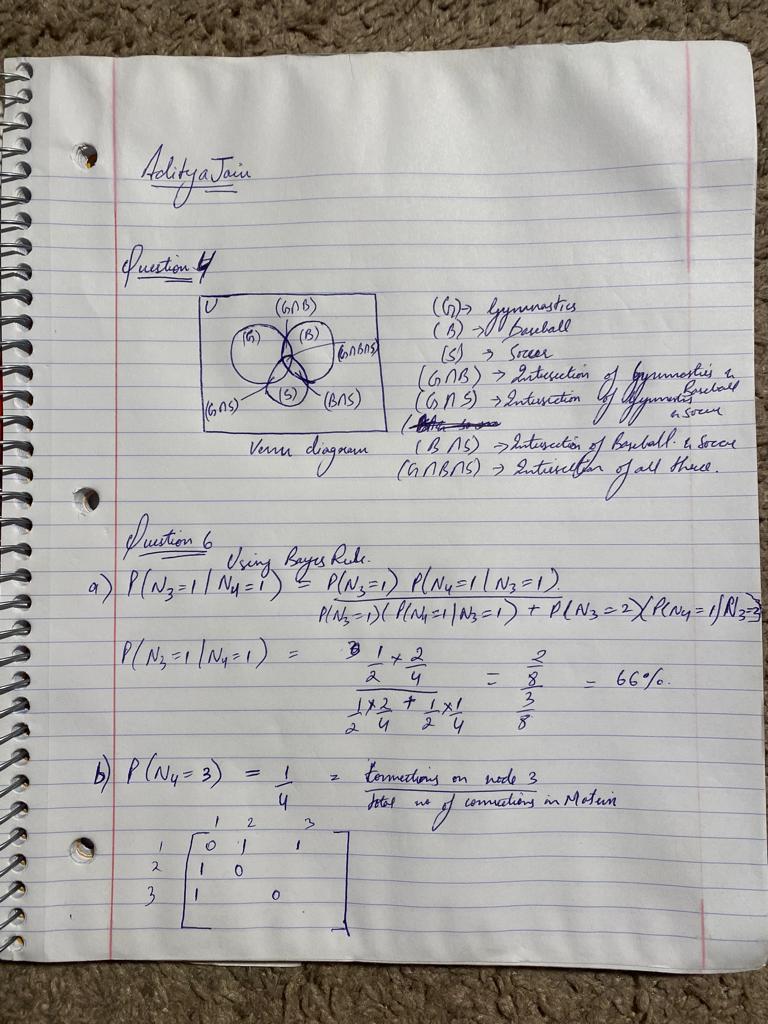 Aditya Jain
Question 4
U (G∩B)
(G) (B)
(G∩B∩S)
(S)
(G∩S) (B∩S)
Venn diagram
(G) → Gymnastics
(B) → Baseball
(S) → Soccer
(G∩B) → Intersection of Gymnastics & Baseball
(G∩S) → Intersection of Gymnastics & Soccer
(B∩S) → Intersection of Baseball & Soccer
(G∩B∩S) → Intersection of all three.
Question 6
Using Bayes Rule.
a) P(N₃=1 | N₄=1) = P(N₃=1) P(N₄=1 | N₃=1)
P(N₃=1)(P(N₄=1 | N₃=1) + P(N₃=2)(P(N₄=1 | N₃=2)
P(N₃=1 | N₄=1) = 1/2 × 2/4 = 2/8 = 66%.
1/2 × 2/4 + 1/2 × 1/4 3/8
b) P(N₄=3) = 1/4 = Connections on node 3
total no of connections in Matrix
1 2 3
1 0 1 1
2 1 0
3 1 0